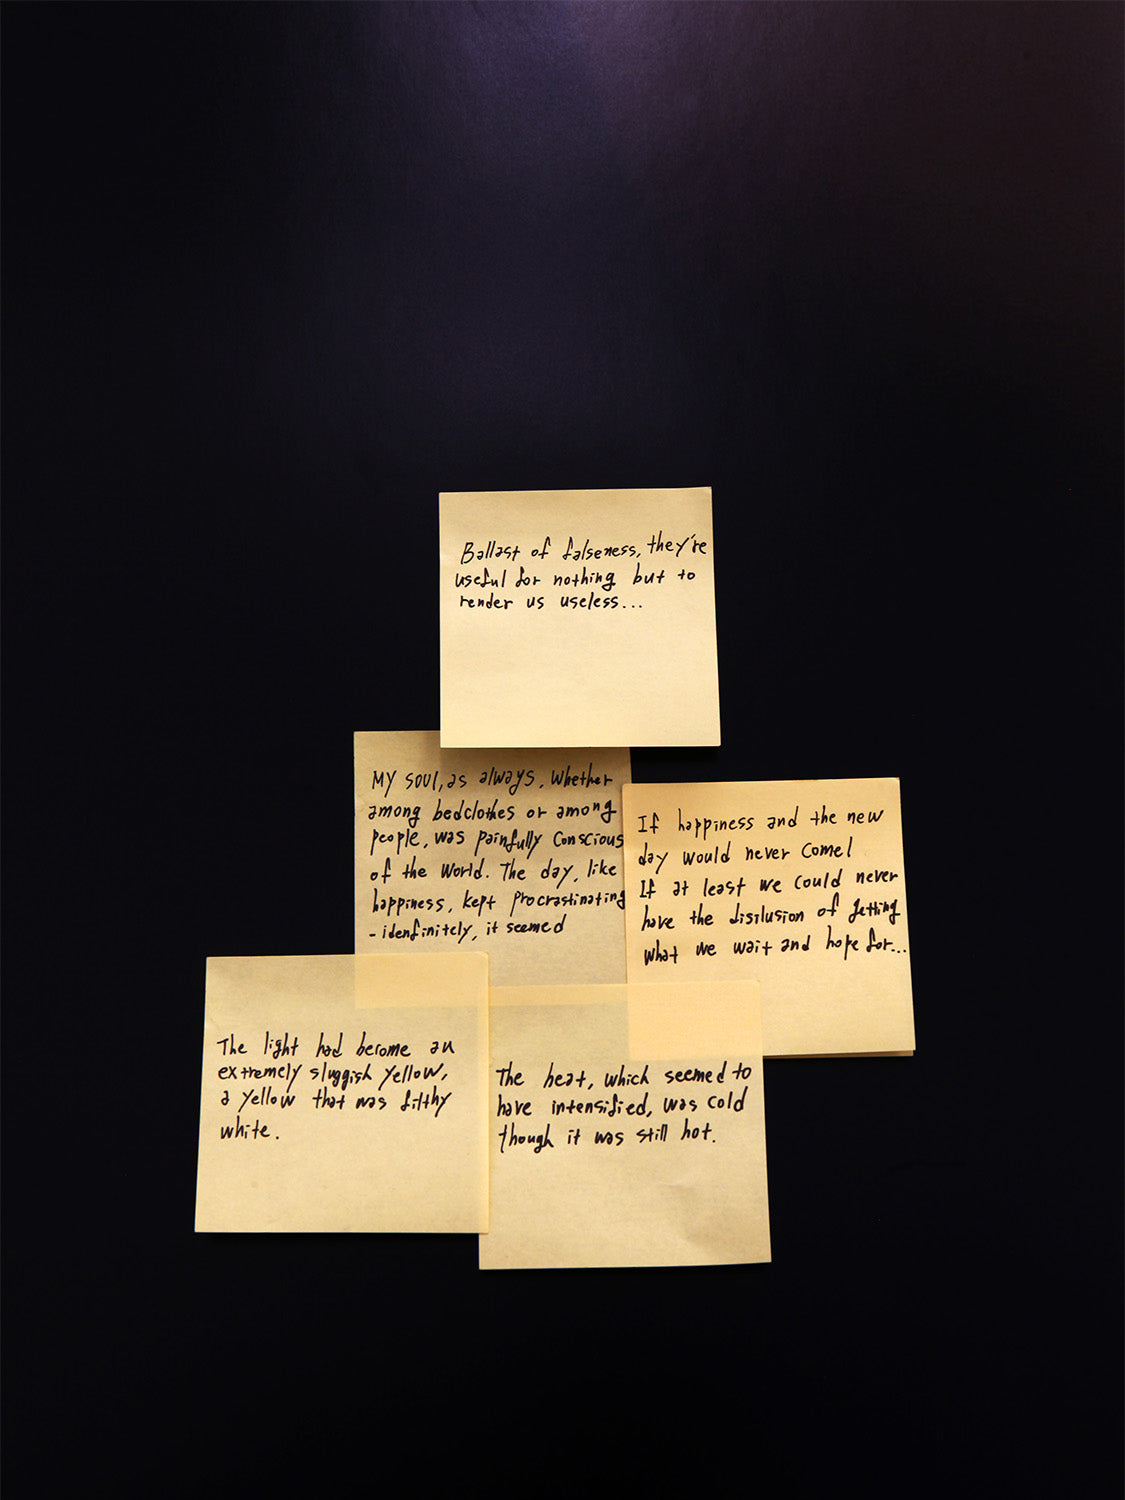 Ballast of falseness, they're
useful for nothing but to
render us useless...
MY soul, as always, whether
among bedclothes or among
people, was painfully conscious
of the world. The day, like
happiness, kept procrastinating
- idenfinitely, it seemed
If happiness and the new
day would never come!
If at least we could never
have the disilusion of getting
what we wait and hope for...
The light had become an
extremely sluggish yellow,
a yellow that was filthy
white.
The heat, which seemed to
have intensified, was cold
though it was still hot.